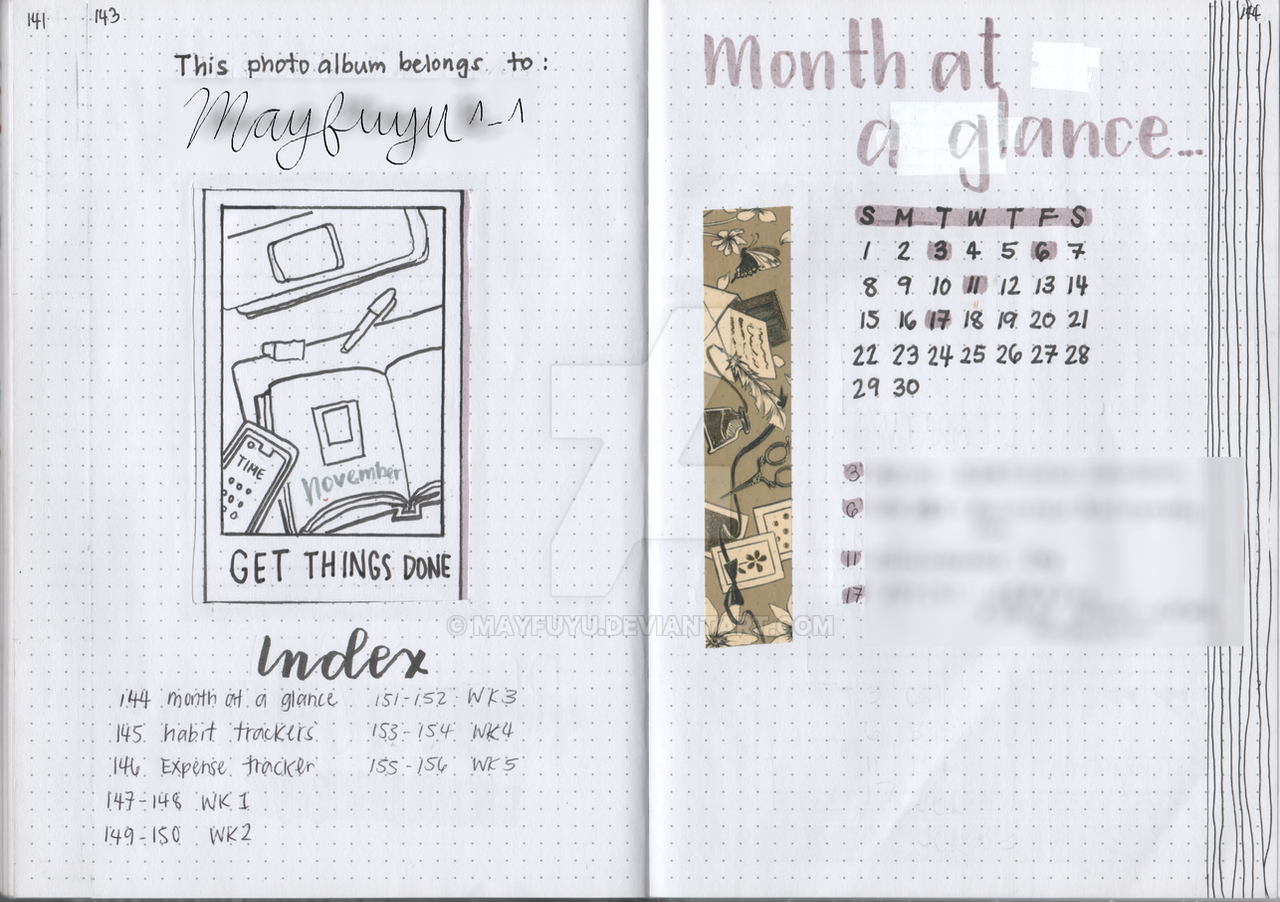 141
143
This photo album belongs to:
Mayfuyu ^-^
TIME
November
GET THINGS DONE
Index
144 month at a glance
145 habit trackers
146 Expense tracker
147-148 WK 1
149-150 WK 2
151-152 WK 3
153-154 WK 4
155-156 WK 5
144
Month at
a glance...
S M T W T F S
1 2 3 4 5 6 7
8 9 10 11 12 13 14
15 16 17 18 19 20 21
22 23 24 25 26 27 28
29 30
3
6
11
17
© MAYFUYU.DEVIANTART.COM